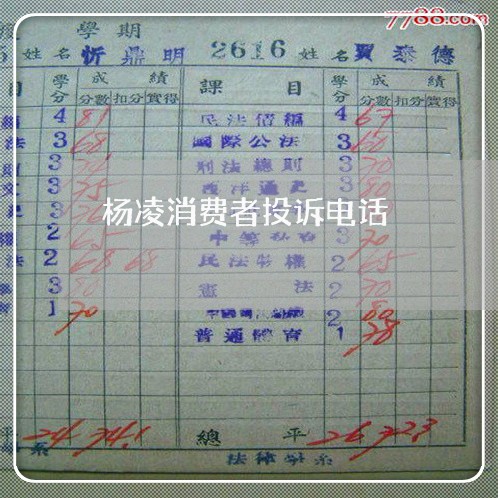 7788.com
學期
姓名 忻鼎明 2616 姓名 賈泰德
目 學分 成績 課目 學分 成績
分數 扣分 實得 分數 扣分 實得
4 81 民法債編 4 67
法 3 68 國際公法 3 60
3 刑法總則 3 70
3 75 西洋通史 3 80
杨凌消费者投诉电话
2 65 3 70
法 2 68 68 民法物權 2 65
3 80 憲法 2 70
1 70 2 80
普通體育 1 78
24 74.1 總平 26 72.3
系 法律學系